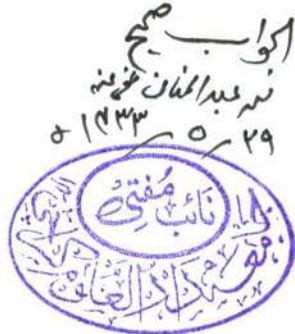 الجواب صحیح
بندہ عبدالمنان عفی عنہ
۲۹ / ۵ / ۱۴۳۳ ھ
نائب مفتی
دار العلوم کراچی